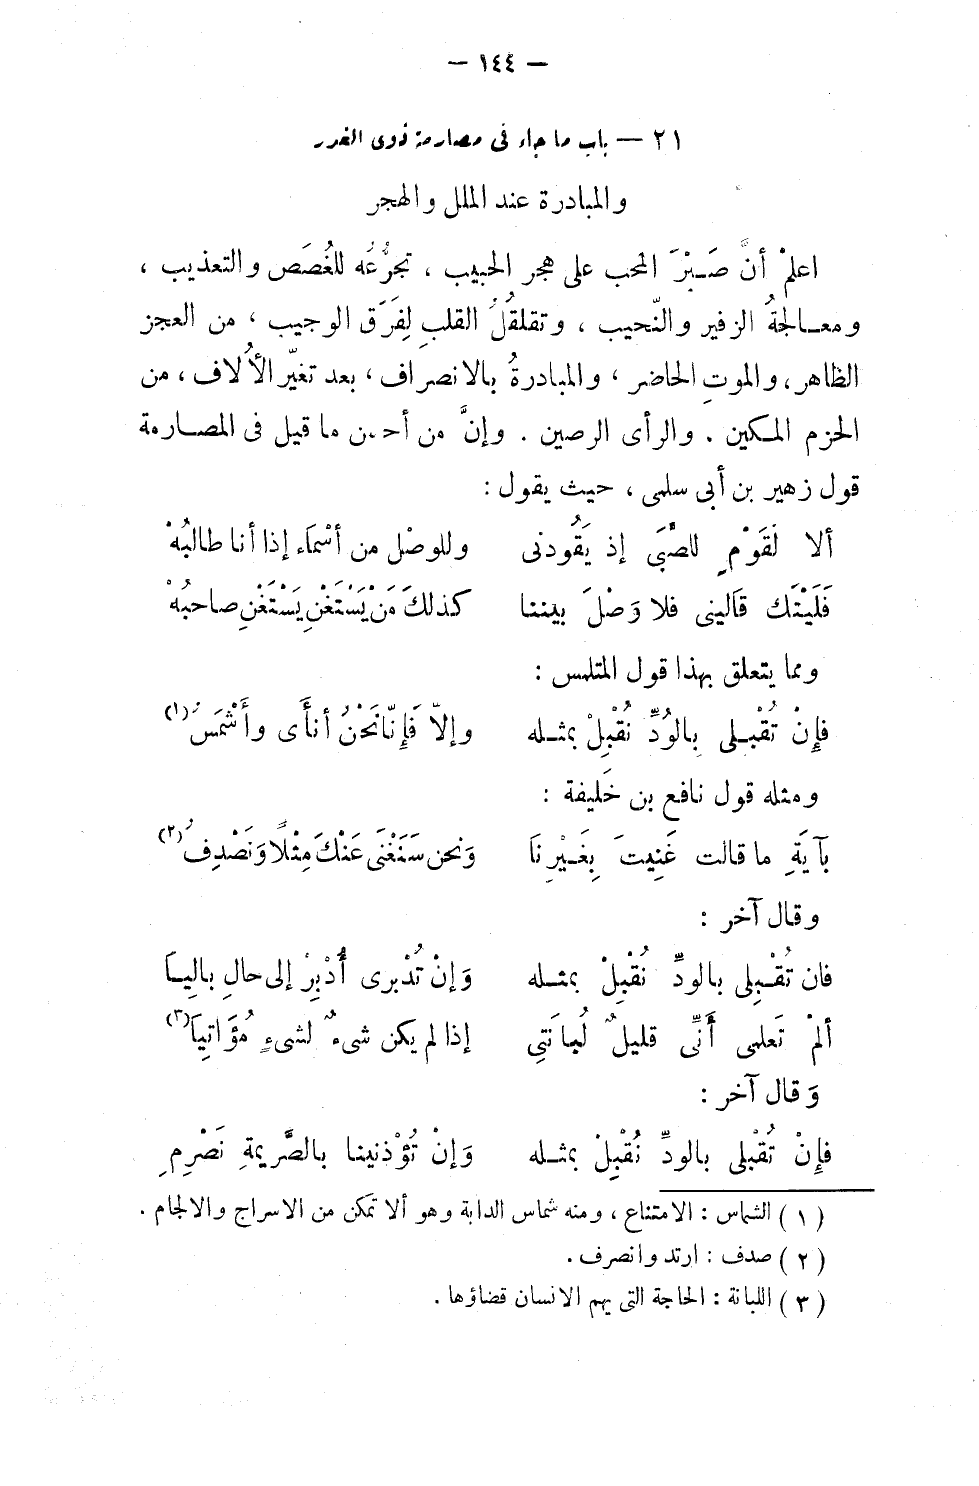 — ١٤٤ —
٢١ — باب ما جاء فى مصارمة ذوى الغدر
والمبادرة عند الملل والهجر
اعلمْ أنَّ صَـبْرَ المحب على هجر الحبيب ، تجرُّعُه للغُصَص والتعذيب ،
ومعـالجةُ الزفير والنّحيب ، وتقلقُلَ القلبِ لِفَرَق الوجيب ، من العجز
الظاهر، والموتِ الحاضر ، والمبادرةُ بالانصراف ، بعد تغيّر الأُلاف ، من
الحزم المـكين . والرأى الرصين . وإنَّ من أحسن ما قيل فى المصـارمة
قول زهير بن أبى سلمى ، حيث يقول :
ألا لَقَوْمٍ للصِّبَى إذ يَقُودنى وللوصْل من أسْمَاء إذا أنا طالبُهْ
فَلَيْتَك قَالينى فلا وَصْلَ بيننا كذلكَ مَنْ يَسْتَغْنِ يَسْتَغْنِ صاحبُهْ
ومما يتعلق بهذا قول المتلمس :
فإِنْ تُقْبـلى بالوُدِّ نُقْبِلْ بمثـله وإلاّ فَإِنّا نَحْنُ أنأَى وأَشْمَسُ (١)
ومثله قول نافع بن خَليفة :
بآيَةِ ما قالت غَنِيتَ بِغَـيْرِنَا وَنحن سَنَغْنَى عَنْكَ مِثْلاً وَنَصْدِفُ (٢)
وقال آخر :
فان تُقْـبِلى بالودِّ نُقْبِلْ بمثـله وَإنْ تُدْبرى أُدْبِرْ إلى حالِ باليَـا
ألمْ تَعلمى أَنِّى قليلٌ لُبانَتِى إذا لم يكن شىءٌ لشىءٍ مُؤَاتيَا (٣)
وَقال آخر :
فإنْ تُقْبلى بالودِّ نُقْبِلْ بمثـله وَإنْ تُؤْذنينا بالصَّريمةِ نَصْرِمِ
( ١ ) الشماس : الامتناع ، ومنه شماس الدابة وهو ألا تمكن من الاسراج والالجام .
( ٢ ) صدف : ارتد وانصرف .
( ٣ ) اللبانة : الحاجة التى يهم الانسان قضاؤها .